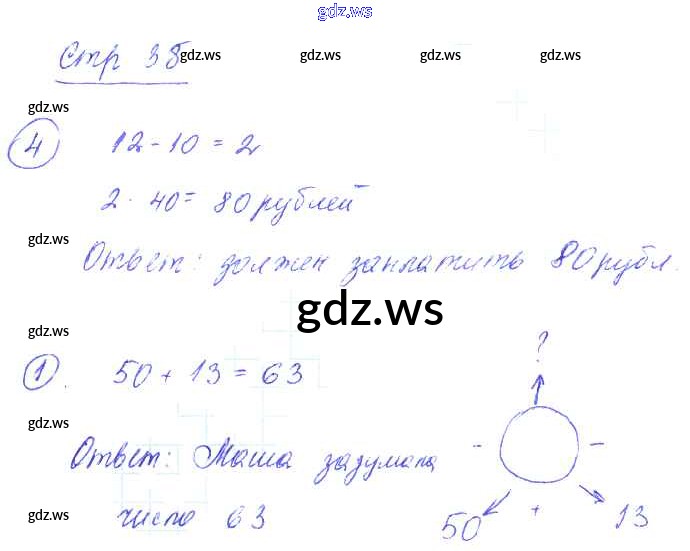 gdz.ws
Стр 35
gdz.ws gdz.ws gdz.ws gdz.ws
gdz.ws
4 12 - 10 = 2
2 · 40 = 80 рублей
gdz.ws
Ответ: должен заплатить 80 рубл.
gdz.ws
gdz.ws
1. 50 + 13 = 63
?
gdz.ws
Ответ: Маша задумала
- -
gdz.ws
число 63
50 + 13